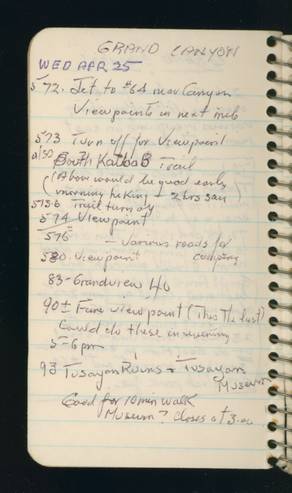 GRAND CANYON
WED APR 25
572. Jct to #64 near Canyon
Viewpoints in next mile
573 Turn off for Viewpoint
South Kaibab Trail
(Above would be good early
morning hiking - 2 hrs say)
573.6 Trail turn off
574 Viewpoint
576 - Various roads for
camping
580 Viewpoint
83 - Grandview
90± Fine viewpoint (This the last)
Could do these in evening
5-6 pm
93 Tusayan Ruins + Tusayan
Museum
Good for 10 min walk
Museum? closes at 3:00